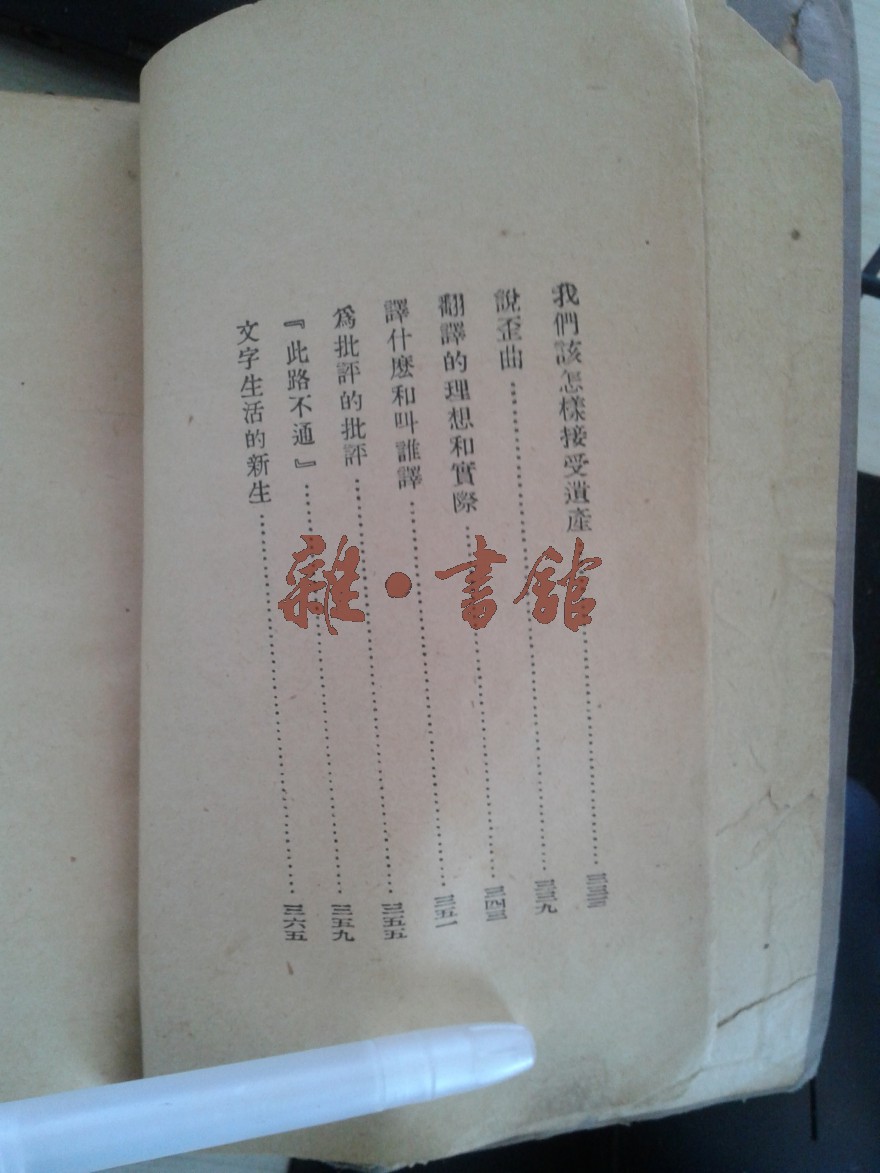 我們該怎樣接受遺產
說歪曲……三三九
翻譯的理想和實際……三四三
譯什麼和叫誰譯……三五一
為批評的批評……三五五
『此路不通』……三五九
文字生活的新生……三六五
雜·書館